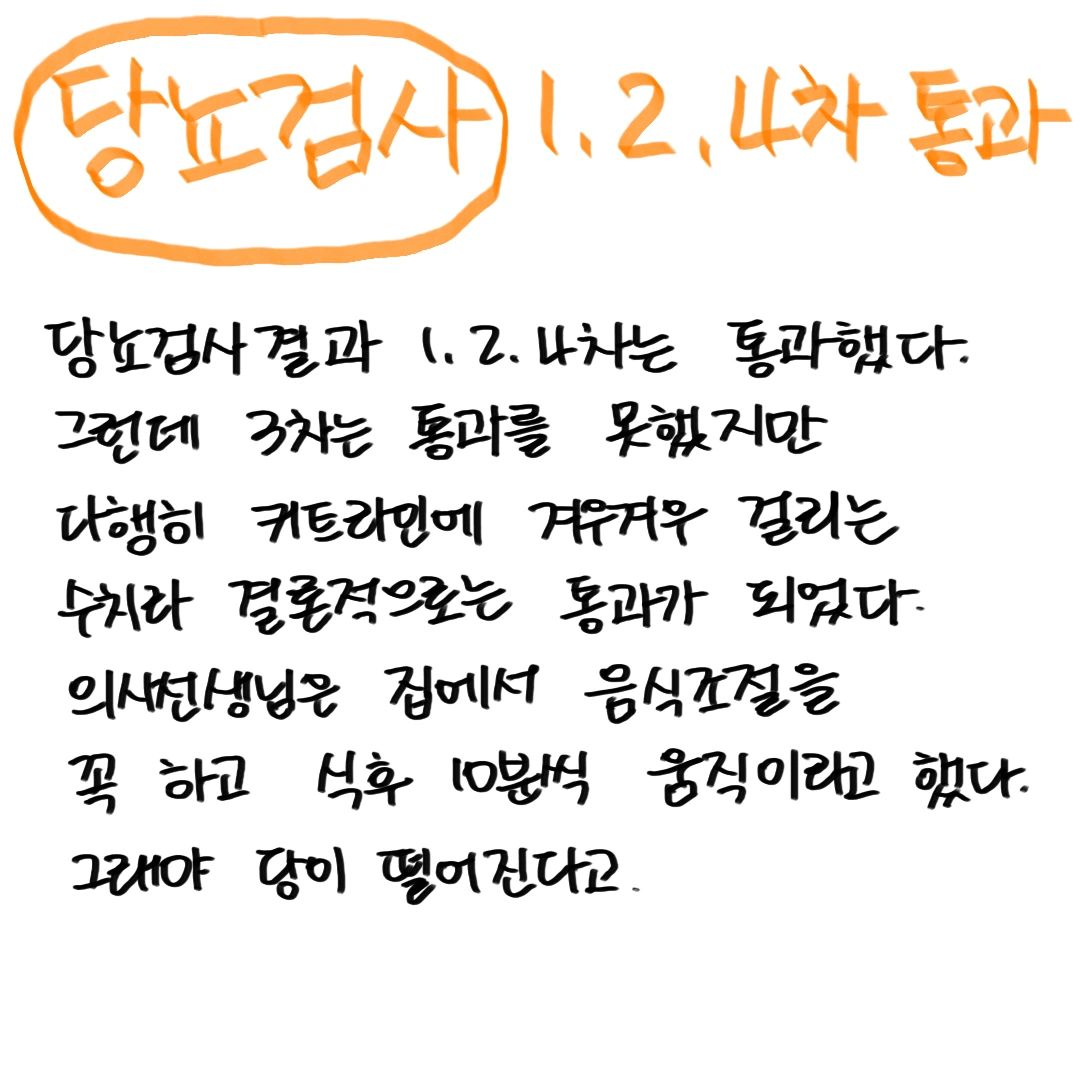 당뇨검사 1. 2. 4차 통과
당뇨검사 결과 1. 2. 4차는 통과했다.
그런데 3차는 통과를 못했지만
다행히 커트라인에 겨우겨우 걸리는
수치라 결론적으로는 통과가 되었다.
의사선생님은 집에서 음식조절을
꼭 하고 식후 10분씩 움직이라고 했다.
그래야 당이 떨어진다고.